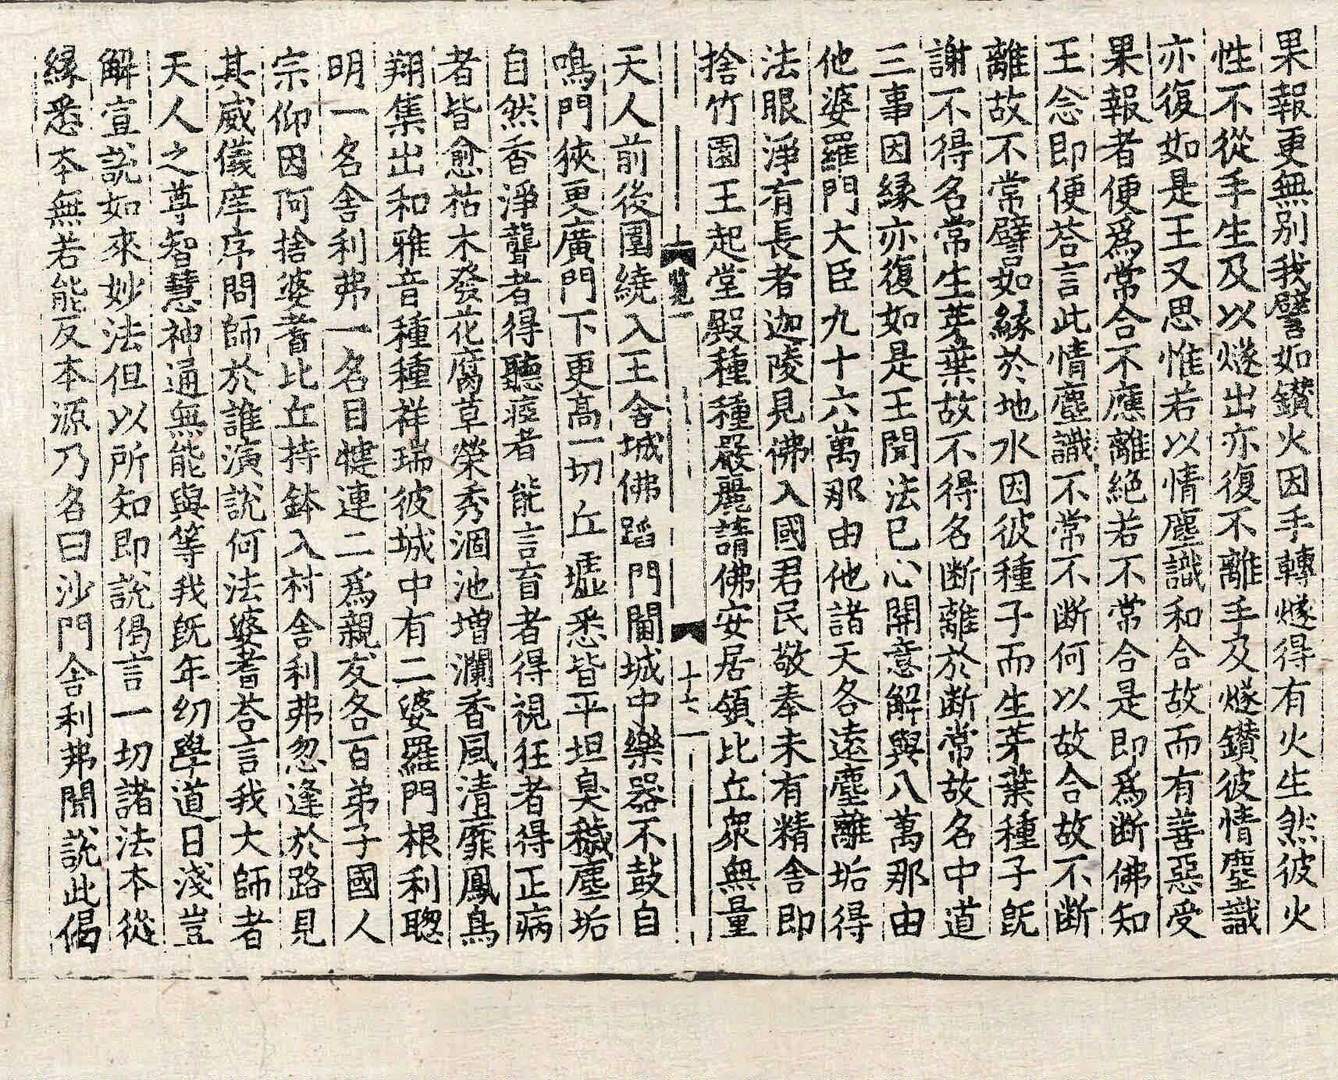 果報更無別我譬如鑚火因手轉燧得有火生然彼火
性不從手生及以燧出亦復不離手及燧鑚彼情塵識
亦復如是王又思惟若以情塵識和合故而有善惡受
果報者便爲常合不應離絕若不常合是即爲断佛知
王念即便荅言此情塵識不常不断何以故合故不断
離故不常譬如緣於地水因彼種子而生芽葉種子旣
謝不得名常生芽葉故不得名断離於断常故名中道
三事因緣亦復如是王聞法已心開意解與八萬那由
他婆羅門大臣九十六萬那由他諸天各遠塵離垢得
法眼淨有長者迦陵見佛入國君民敬奉未有精舍即
捨竹園王起堂殿種種嚴麗請佛安居領比丘衆無量
覽一 十七
天人前後圍繞入王舍城佛蹈門閫城中樂器不鼓自
鳴門狹更廣門下更高一切丘墟悉皆平坦臭穢塵垢
自然香淨聾者得聽瘂者能言盲者得視狂者得正病
者皆愈枯木發花腐草榮秀涸池增瀾香風清靡鳳鳥
翔集出和雅音種種祥瑞彼城中有二婆羅門根利聦
明一名舍利弗一名目犍連二爲親友各百弟子國人
宗仰因何捨婆耆比丘持鉢入村舍利弗忽逢於路見
其威儀庠序問師於誰演說何法婆耆荅言我大師者
天人之尊智慧神通無能與等我旣年幼學道日淺豈
解宣說如來妙法但以所知即說偈言一切諸法本從
緣悉本無若能反本源乃名曰沙門舍利弗聞說此偈